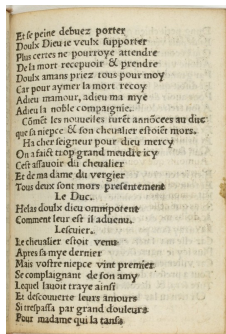 Et se peine debuez porter
Doulx Dieu ie veulx supporter
Plus certes ne pourroye attendre
De la mort recepuoir & prendre
Doulx amans priez tous pour moy
Car pour aymer la mort recoy
Adieu mamour, adieu ma mye
Adieu la noble compaignie.
Cõmẽt les nouuelles furẽt annõcees au duc
que sa niepce & son cheualier estoiẽt mors.
Ha cher seigneur pour dieu mercy
On a faict trop grand meudre icy
Cest assauoir du cheualier
Et de ma dame du vergier
Tous deux sont mors presentement
Le Duc.
Helas doulx dieu omnipotent
Comment leur est il aduenu.
Lescuier.
Le cheualier estoit venu
Apres sa mye dernier
Mais vostre niepce vint premier
Se complaignant de son amy
Lequel lauoit traye ainsi
Et descouuerte leurs amours
Si trespassa par grand douleurs
Pour madame qui la tansa